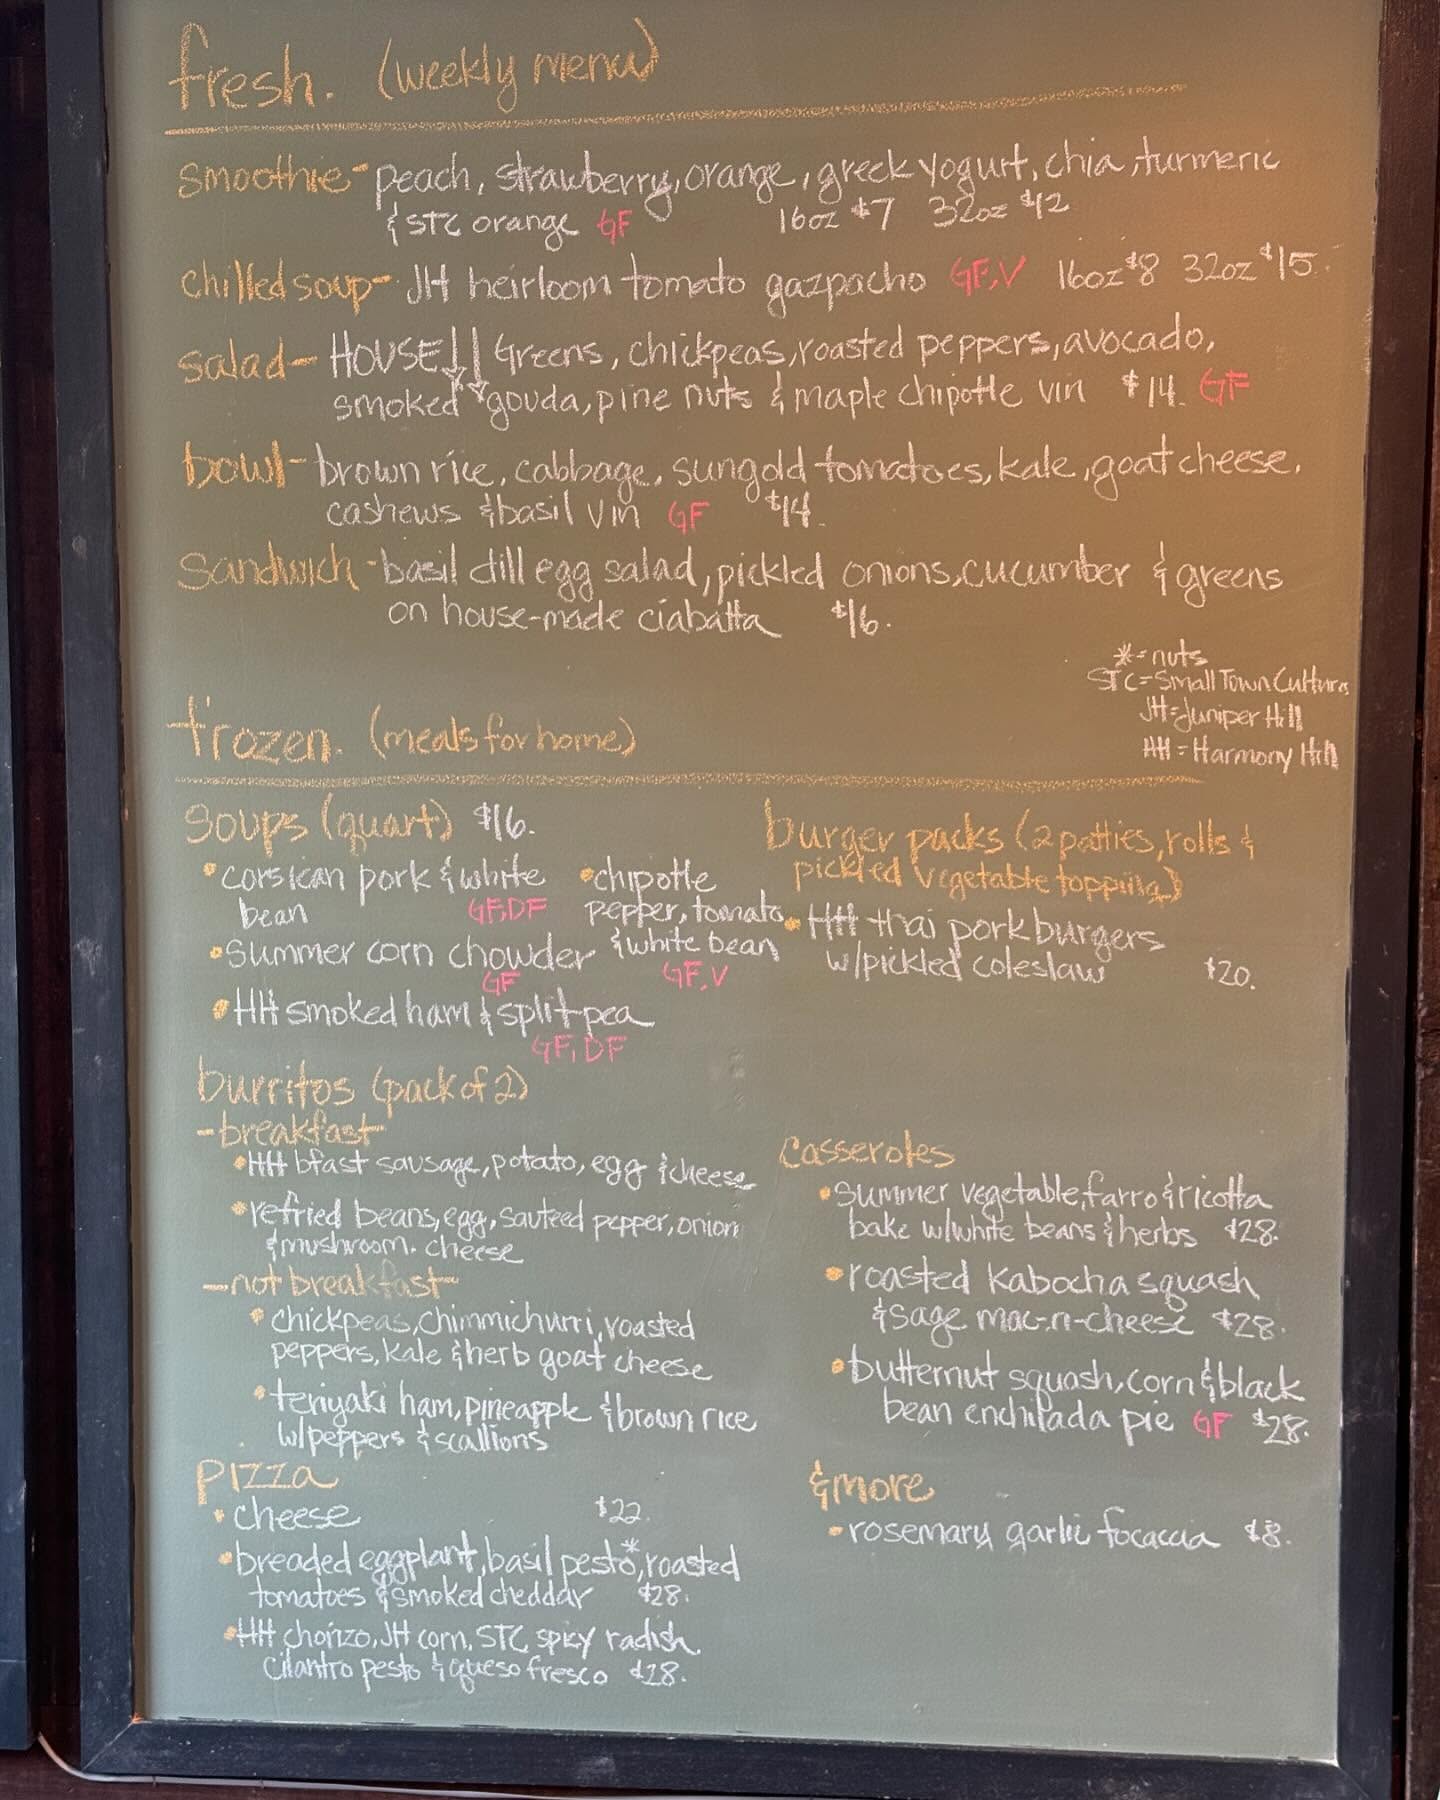 fresh. (weekly menu)
smoothie - peach, strawberry, orange, greek yogurt, chia, turmeric
& STC orange GF 16oz $7 32oz $12
chilled soup - JH heirloom tomato gazpacho GF, V 16oz $8 32oz $15.
salad - HOUSE!! Greens, chickpeas, roasted peppers, avocado,
smoked gouda, pine nuts & maple chipotle vin $14. GF
bowl - brown rice, cabbage, sungold tomatoes, kale, goat cheese,
cashews & basil vin GF $14.
sandwich - basil dill egg salad, pickled onions, cucumber & greens
on house-made ciabatta $16.
* = nuts
STC = Small Town Cultures
JH = Juniper Hill
HH = Harmony Hill
frozen. (meals for home)
soups (quart) $16.
• corsican pork & white
bean GF, DF
• summer corn chowder
GF
• HH smoked ham & split pea
GF, DF
• chipotle
pepper, tomato
& white bean
GF, V
burger packs (2 patties, rolls &
pickled vegetable topping)
• HH thai pork burgers
w/pickled coleslaw $20.
burritos (pack of 2)
- breakfast -
• HH bfast sausage, potato, egg & cheese
• refried beans, egg, sauteed pepper, onion
& mushroom. cheese
- not breakfast -
• chickpeas, chimmichurri, roasted
peppers, kale & herb goat cheese
• teriyaki ham, pineapple & brown rice
w/peppers & scallions
casseroles
• summer vegetable, farro & ricotta
bake w/white beans & herbs $28.
• roasted kabocha squash
& sage mac-n-cheese $28.
• butternut squash, corn & black
bean enchilada pie GF $28.
pizza
• cheese $22.
• breaded eggplant, basil pesto*, roasted
tomatoes & smoked cheddar $28.
• HH chorizo, JH corn, STC spicy radish,
cilantro pesto & queso fresco $28.
& more
• rosemary garlic focaccia $8.